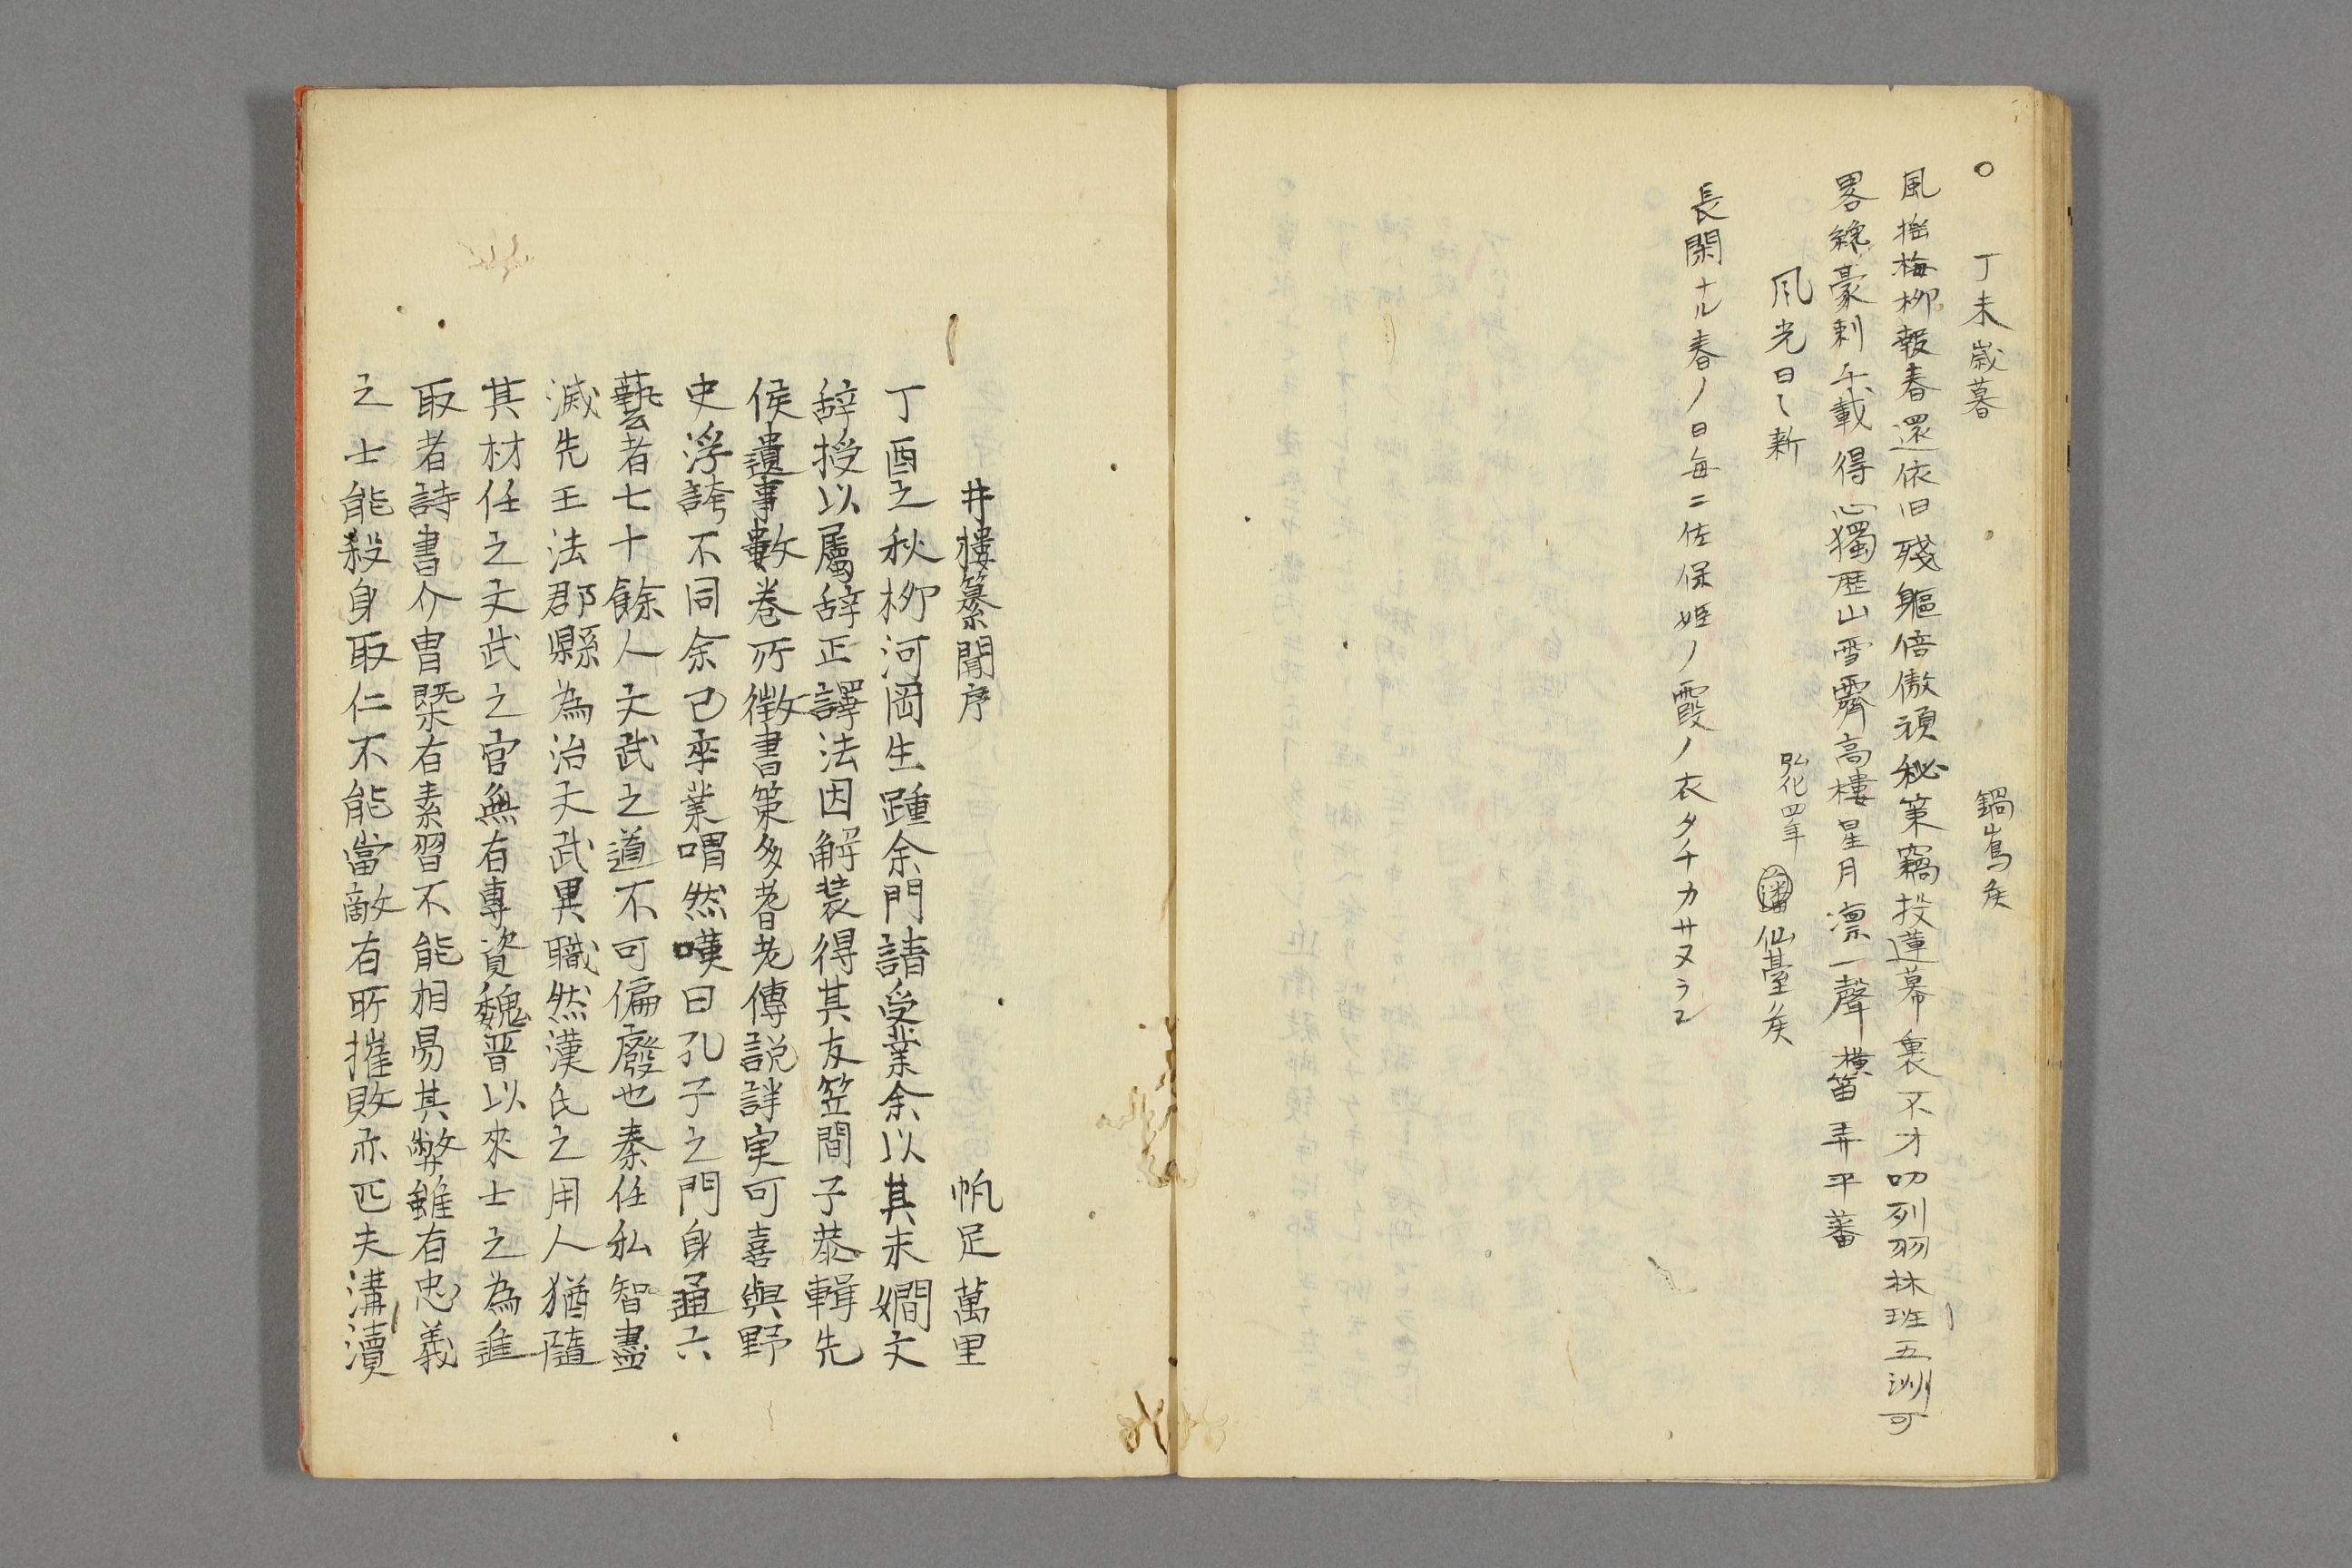 ○　丁未歳暮　　　　　鍋嶌矦
風揺梅柳報春還依旧殘軀倍傲頑秘策竊投蓮幕裏不才叨列羽林班五洲可
畧總豪剌千載得心獨歴山雪霽高樓星月凛一聲橫笛弄平蕃
風光日〻新　　　弘化四年　藩　仙䑓矦
長閑ナル春ノ日毎ニ佐保姫ノ霞ノ衣タチカサヌラン
井樓纂聞序　　　帆足萬里
丁酉之秋栁河岡生踵余門請受業余以其未嫺文
辞授以屬辞正譯法因解装得其友笠間子恭輯先
侯遺事數巻所徴書策多耆老傳説詳実可喜與野
史浮誇不同余己卒業喟然嘆曰孔子之門身通六
藝者七十餘人文武之道不可偏廢也秦任私智盡
滅先王法郡縣為治文武異職然漢氏之用人猶隨
其材任之文武之官無有專資魏晋以來士之為進
取者詩書介冑槩有素習不能相易其弊雖有忠義
之士能殺身取仁不能當敵有所摧敗亦匹夫溝瀆